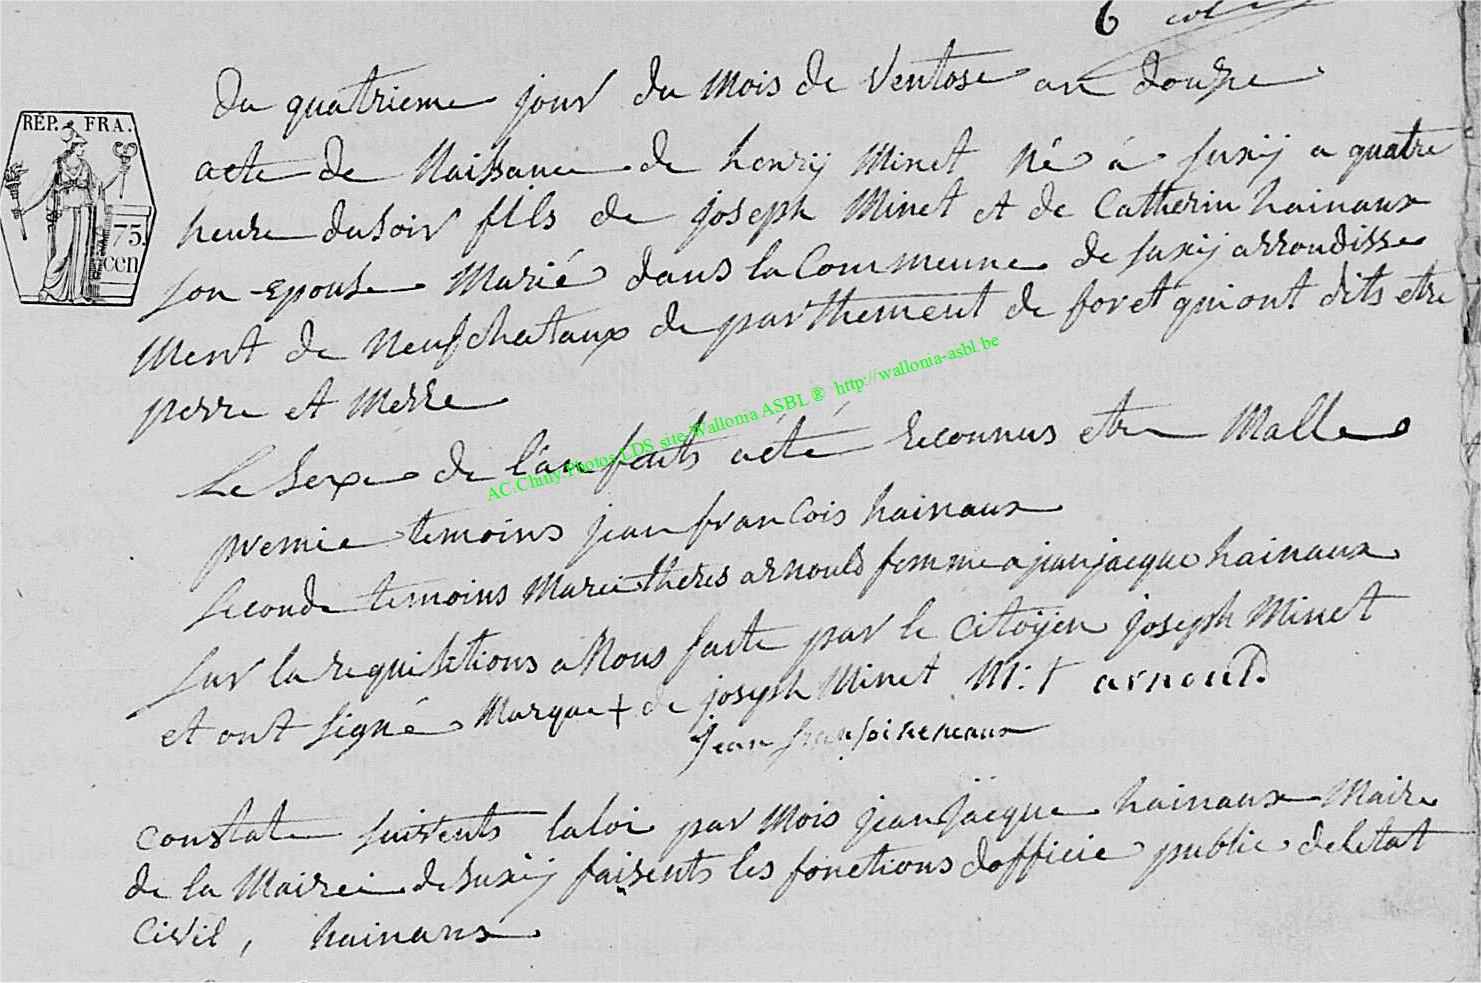 6
Du quatrieme jour du Mois de Ventose an douze
REP. FRA.
75.
cen
acte de Naissance de henrij Minet né a suxij a quatre
heure du soir fils de joseph Minet et de Catherin hainaux
son Epouse Marié dans la Commeune de suxij arrondisse
Ment de Neufchataux departhement de foret qui ont dits etre
perre et Merre
Le Sexe de l'anfents a été Reconnus etre Malle
premie temoins jean francois hainaux
seconde temoins Marie theres arnould femme a jean jacque hainaux
sur la requisitions a Nous faite par le Citoÿen joseph Minet
et ont signé Marque + de joseph Minet M: t arnould
jean
constate suivents la loi par Mois jean jacque hainaux Maire
de la Mairei de suxij faisents les fonctions dofficie public de letat
Civil, hainaux
AC.Chiny.Photos LDS site Wallonia ASBL ® http://wallonia-asbl.be